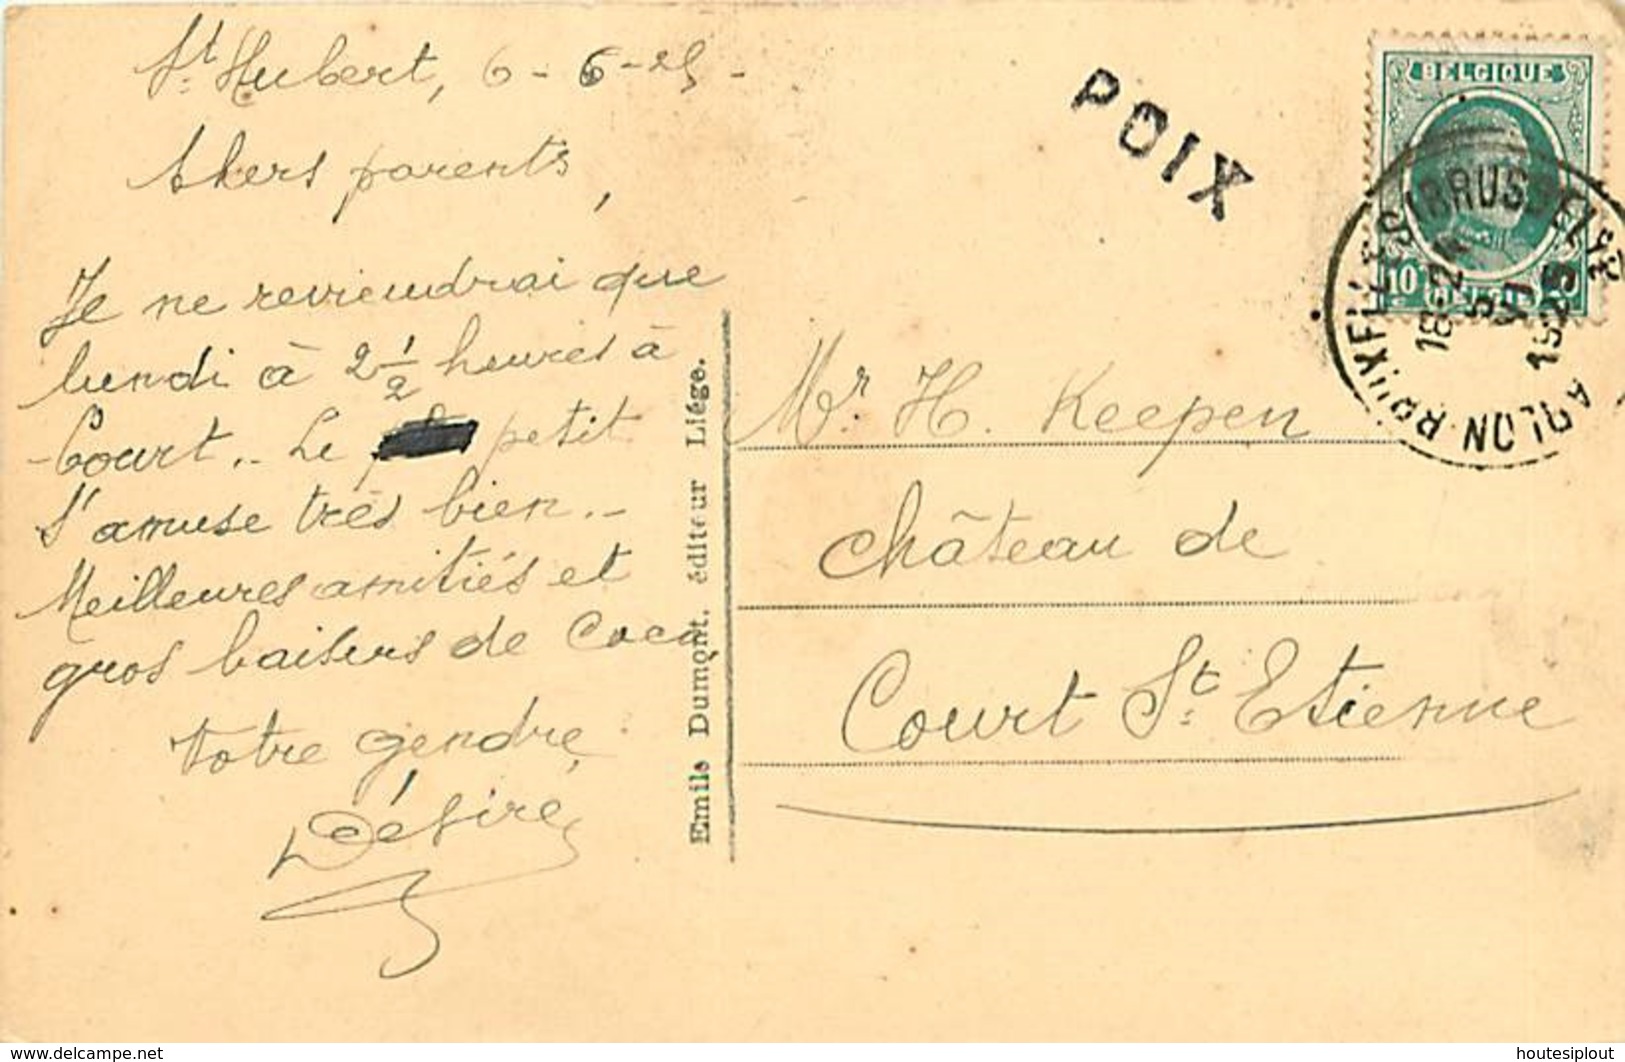 St Hubert, 6-6-25-
Chers parents,
Je ne reviendrai que
lundi à 2 1/2 heures à
Court.. Le petit
s'amuse très bien..
Meilleures amitiés et
gros baisers de Coco
Votre gendre,
Désiré
Emile Dumont. éditeur Liége.
POIX
BELGIQUE
10 BELGIE
ARLON BRUXELLES 1 BRUSSEL
18-2
VI
1925
Mr H. Keepen
Château de
Court St Etienne
www.delcampe.net
houtesiplout